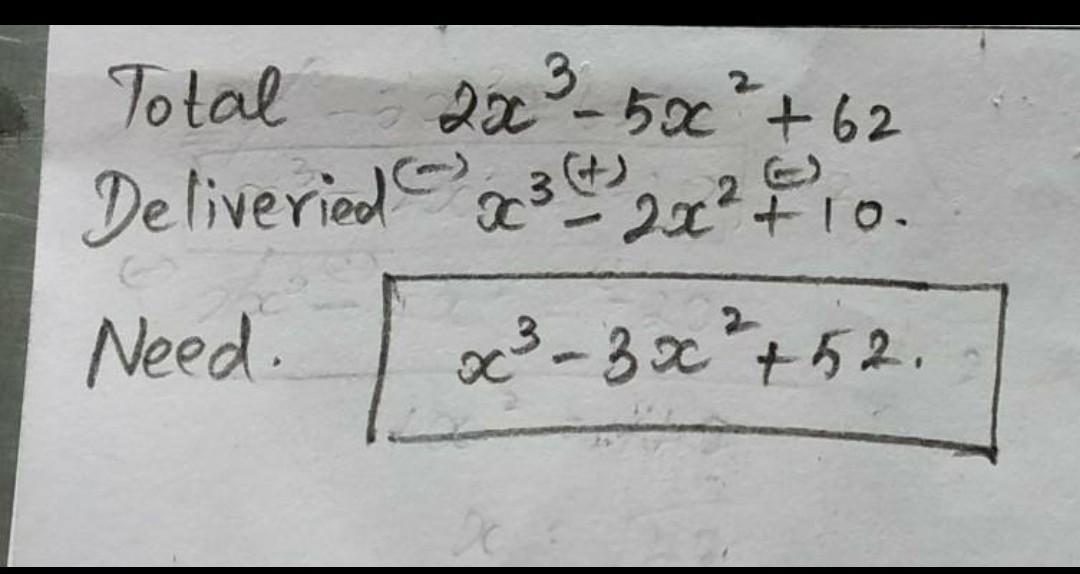 Total 2x³ - 5x² + 62
Deliveried (-) x³ (+) - 2x² (-) + 10.
Need. x³ - 3x² + 52.